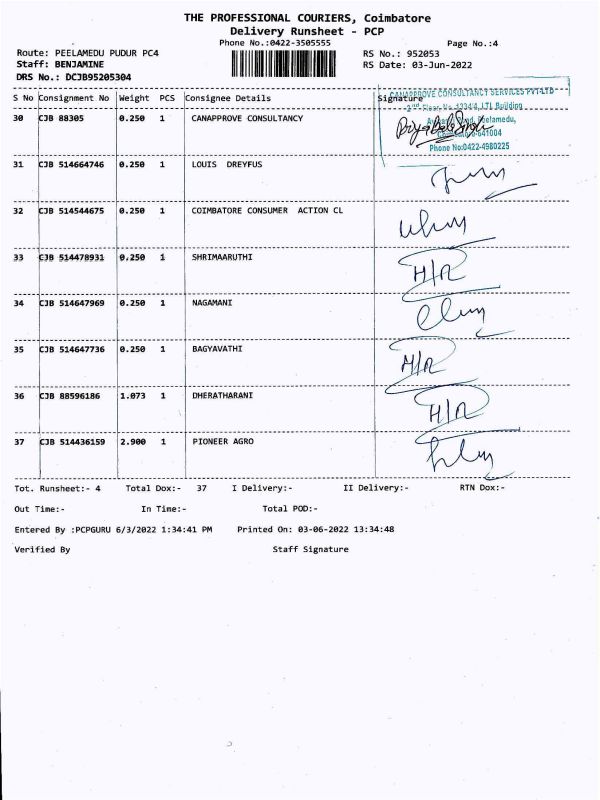 THE PROFESSIONAL COURIERS, Coimbatore
Delivery Runsheet - PCP
Phone No.:0422-3505555
Page No.:4
Route: PEELAMEDU PUDUR PC4
RS No.: 952053
Staff: BENJAMINE
RS Date: 03-Jun-2022
DRS No.: DCJB95205304
S No Consignment No Weight PCS Consignee Details Signature
CANAPPROVE CONSULTANCY SERVICES PVT-LTD
2nd Floor, No. 1234/4, LTL Building
30 CJB 88305 0.250 1 CANAPPROVE CONSULTANCY
Peelamedu,
641004
Phone No:0422-4980225
31 CJB 514664746 0.250 1 LOUIS DREYFUS
32 CJB 514544675 0.250 1 COIMBATORE CONSUMER ACTION CL
33 CJB 514478931 0.250 1 SHRIMAARUTHI H/R
34 CJB 514647969 0.250 1 NAGAMANI
35 CJB 514647736 0.250 1 BAGYAVATHI H/R
36 CJB 88596186 1.073 1 DHERATHARANI H/R
37 CJB 514436159 2.900 1 PIONEER AGRO
Tot. Runsheet:- 4 Total Dox:- 37 I Delivery:- II Delivery:- RTN Dox:-
Out Time:- In Time:- Total POD:-
Entered By :PCPGURU 6/3/2022 1:34:41 PM Printed On: 03-06-2022 13:34:48
Verified By Staff Signature